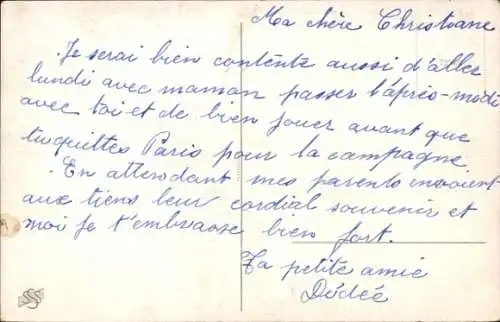 Ma chère Christiane
Je serai bien contente aussi d'aller
lundi avec maman passer l'après-midi
avec toi et de bien jouer avant que
tu quittes Paris pour la campagne.
En attendant mes parents envoient
aux tiens leur cordial souvenir et
moi je t'embrasse bien fort.
Ta petite amie
Dédée